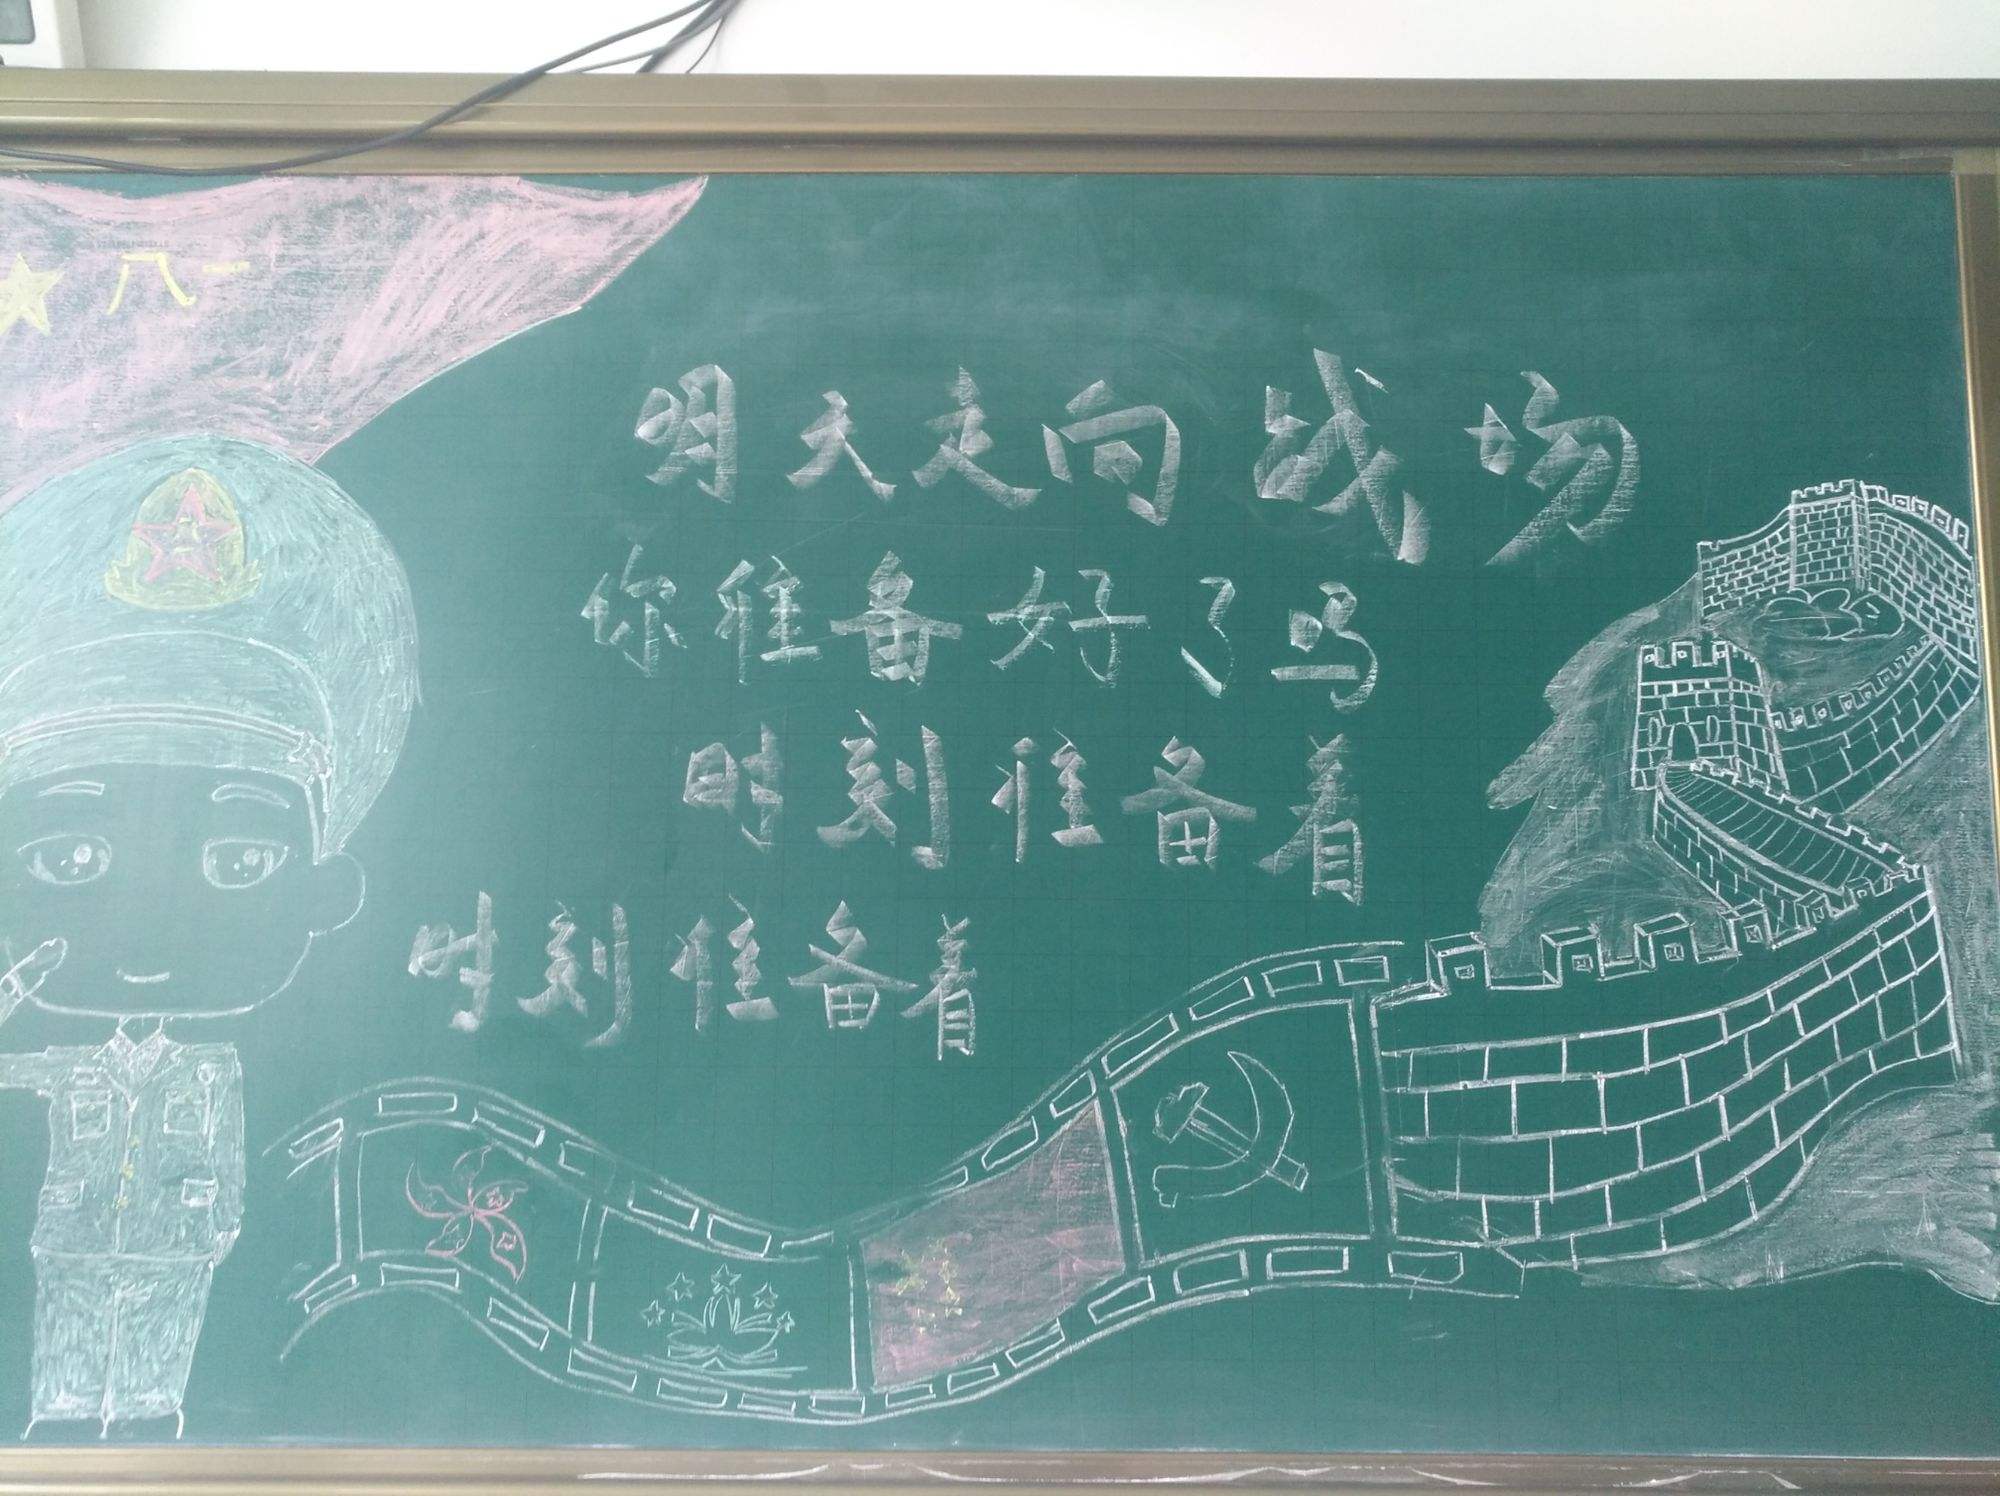 八一
明天走向战场
你准备好了吗
时刻准备着
时刻准备着